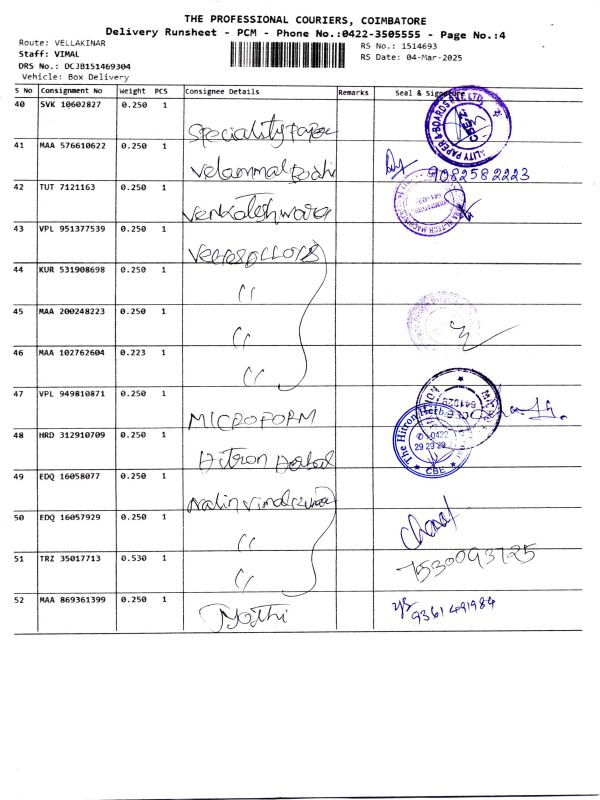 THE PROFESSIONAL COURIERS, COIMBATORE
Delivery Runsheet - PCM - Phone No.:0422-3505555 - Page No.:4
Route: VELLAKINAR
RS No.: 1514693
Staff: VIMAL
RS Date: 04-Mar-2025
DRS No.: DCJB151469304
Vehicle: Box Delivery
S No Consignment No Weight PCS Consignee Details Remarks Seal & Signature
40 SVK 10602827 0.250 1 Speciality Paper
41 MAA 576610622 0.250 1 Velammal Bodhi 9082582223
42 TUT 7121163 0.250 1 Venkateshwara
43 VPL 951377539 0.250 1
44 KUR 531908698 0.250 1 "
45 MAA 200248223 0.250 1 "
46 MAA 102762604 0.223 1 "
47 VPL 949810871 0.250 1 MICROFORM
48 HRD 312910709 0.250 1 Hitron Herbal
The Hitron Herb
0422
29 29 29
CBE
49 EDQ 16058077 0.250 1 Nalin Vimal Kumar
50 EDQ 16057929 0.250 1 "
51 TRZ 35017713 0.530 1 " 7530093725
52 MAA 869361399 0.250 1 Jothi 9361491984